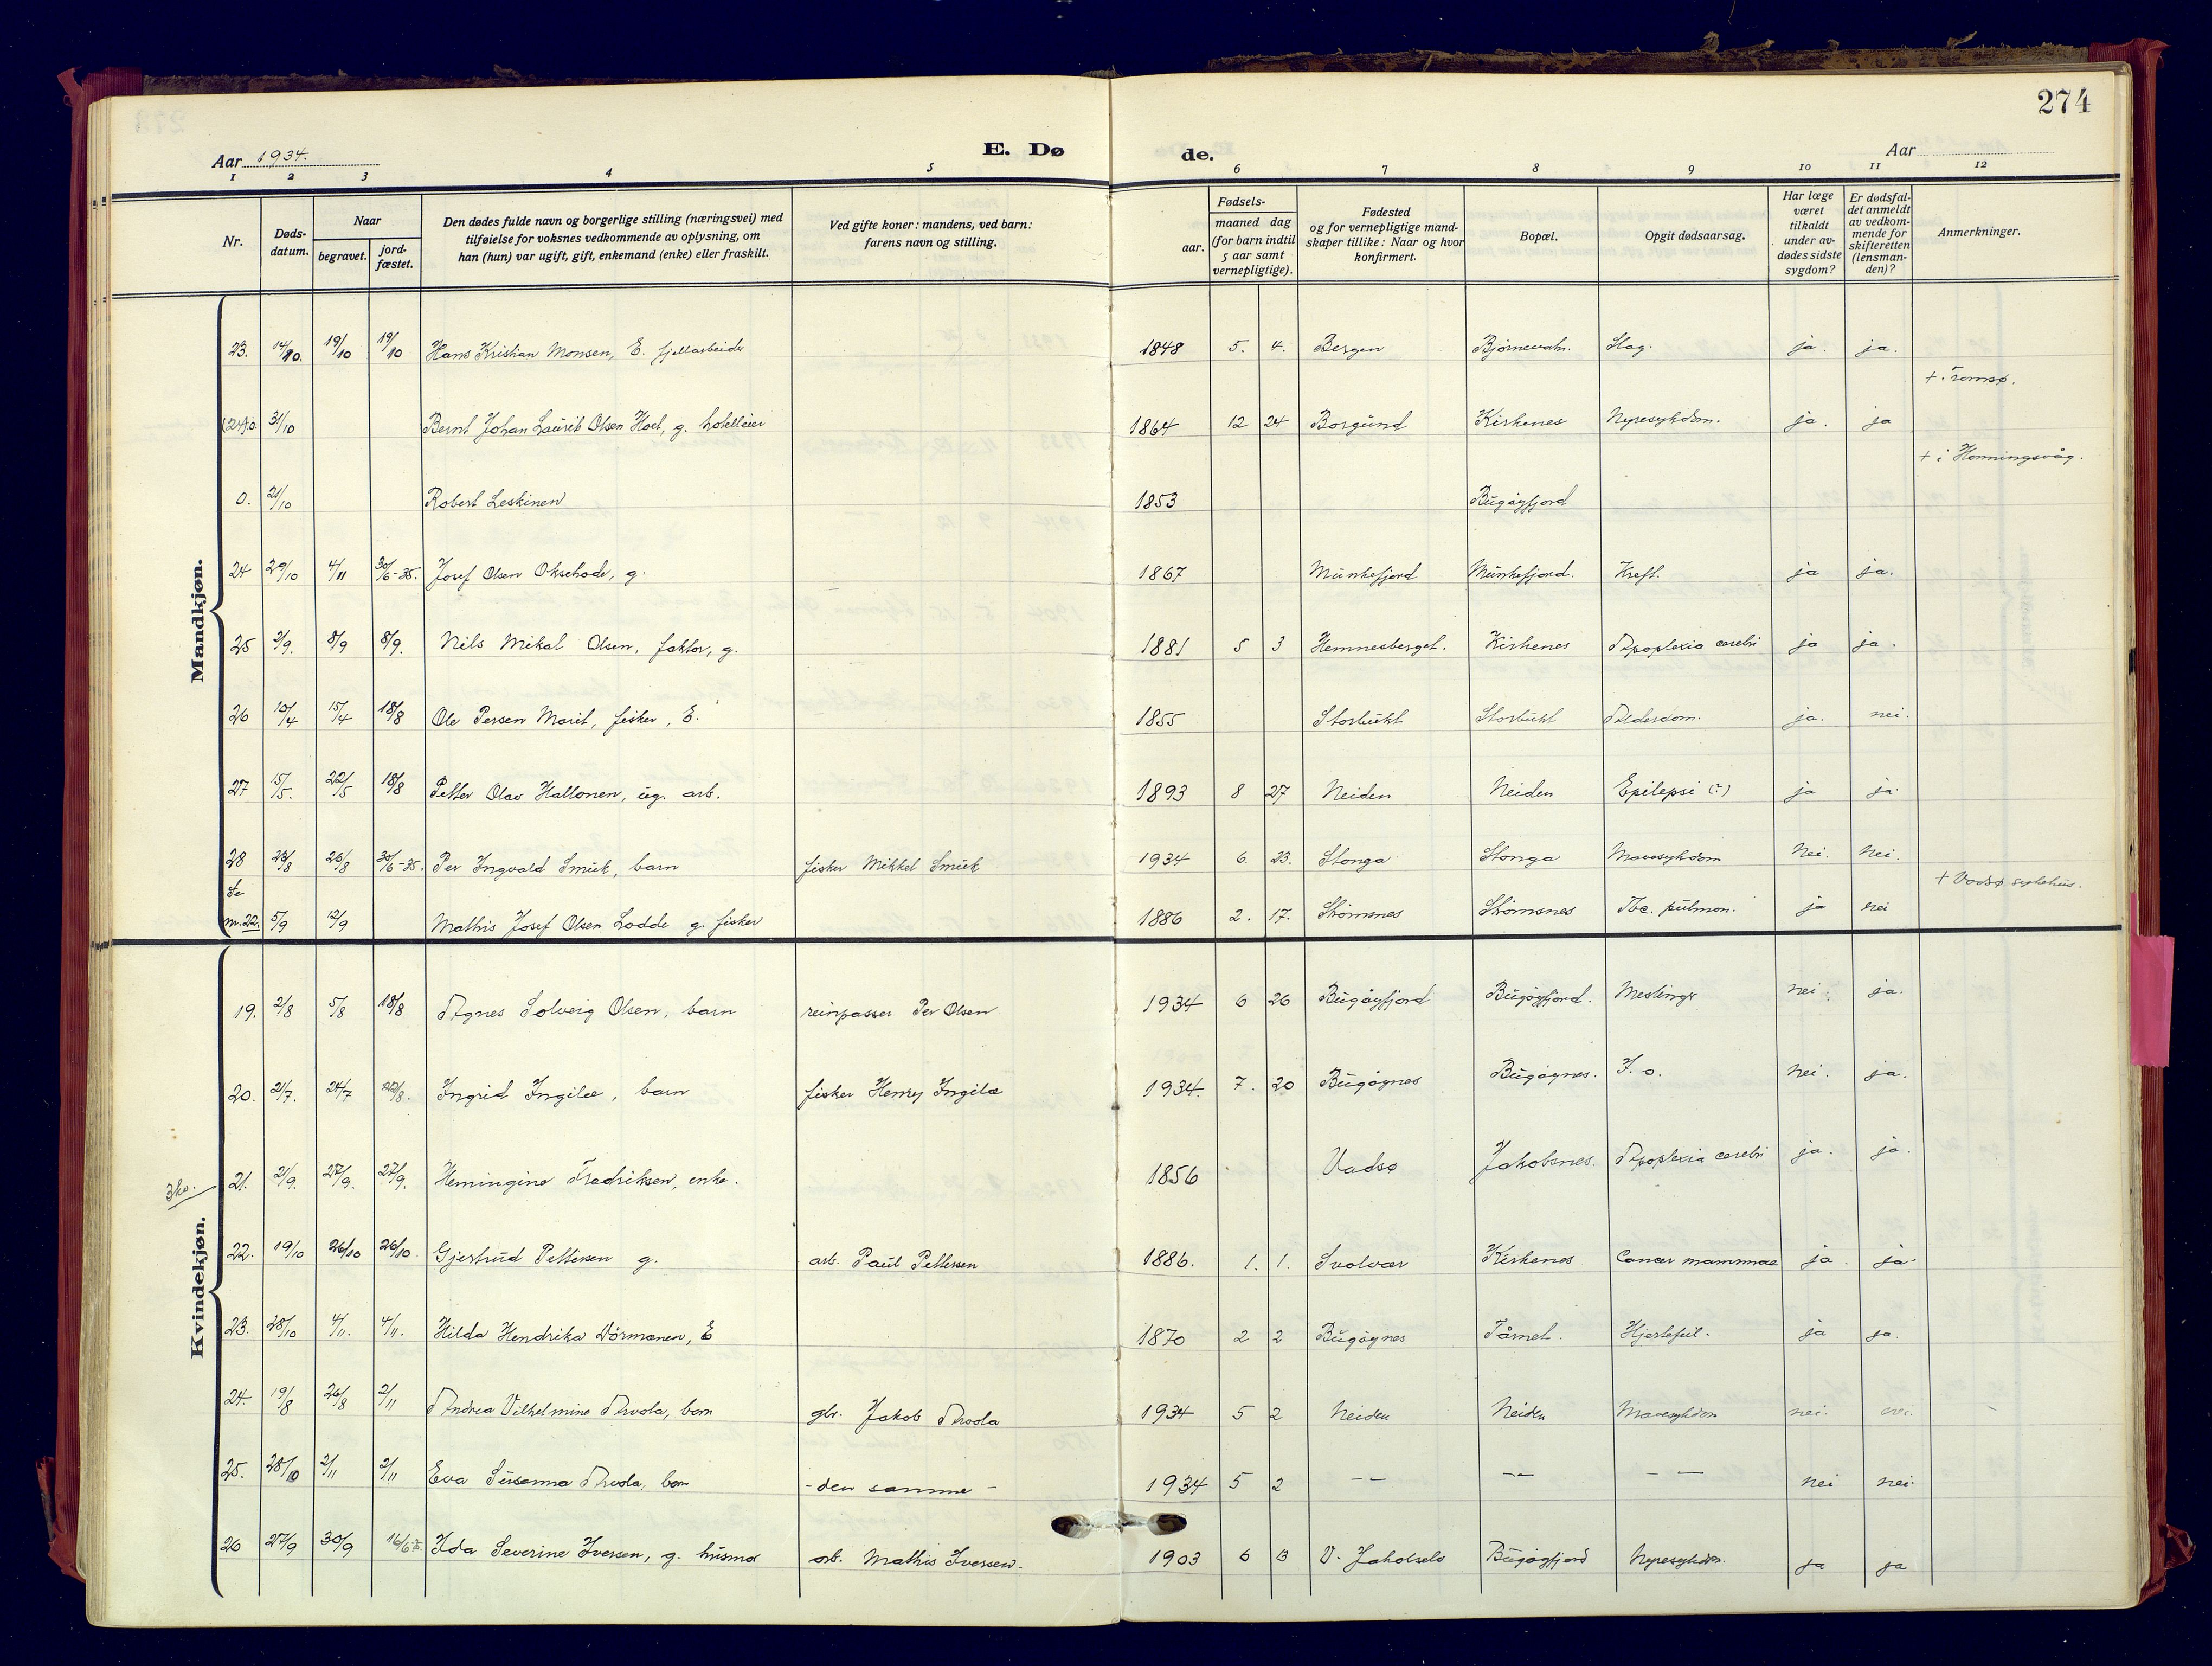 274
Aar 1934. E. Dø de. Aar
1 2 3 4 5 6 7 8 9 10 11 12
Nr. Døds-datum. Naar begravet. jord-fæstet. Den dødes fulde navn og borgerlige stilling (næringsvei) med tilføielse for voksnes vedkommende av oplysning, om han (hun) var ugift, gift, enkemand (enke) eller fraskilt. Ved gifte koner: mandens, ved barn: farens navn og stilling. Fødsels- aar. maaned dag (for barn indtil 5 aar samt vernepligtige). Fødested og for vernepligtige mand-skaper tillike: Naar og hvor konfirmert. Bopæl. Opgit dødsaarsag. Har læge været tilkaldt under av-dødes sidste sygdom? Er dødsfal-det anmeldt av vedkom-mende for skifteretten (lensman-den)? Anmerkninger.
Mandkjøn.
23. 14/10. 19/10 19/10 Hans Kristian Monsen, E. fjellarbeider 1848 5. 4. Bergen Bjørnevatn. Slag. ja. ja.
+ i Tromsø.
(24)0. 31/10 Bernt Johan Laurits Olsen Hoel, g. hotelleier 1864 12 24 Borgund Kirkenes Nyresykdom. ja. ja
+ i Honningsvåg.
0. 21/10 Robert Leskinen 1853 Bugøyfjord
24 29/10 4/11 30/6-35. Josef Olsen Oksehode, g. 1867 Munkefjord Munkefjord. Kreft. ja ja.
25 3/9. 8/9 8/9. Nils Mikal Olsen, faktor, g. 1881 5 3 Hemnesberget. Kirkenes Apoplexia cerebri ja ja.
26 10/4 15/4 18/8 Ole Persen Marit, fisker, E. 1855 Storbukt Storbukt Alderdom. ja. nei.
27 15/5. 22/5 18/8 Petter Olav Hallonen, ug. arb. 1893 8 27 Neiden Neiden Epilepsi (?) ja ja
28 23/8 26/8 30/6-35. Per Ingvald Smuk, barn fisker Mikkel Smuk 1934 6. 23. Stonga Stonga Mavesykdom Nei. Nei.
+ Vadsø sykehus.
Se nr. 22. 5/9 12/9 Mathis Josef Olsen Lodde g. fisker 1886 2. 17. Strømsnes Strømsnes Tbc. pulmon. ja nei
Kvindekjøn.
19. 2/8 5/8 18/8 Agnes Solveig Olsen, barn reinpasser Per Olsen 1934 6 26 Bugøyfjord Bugøyfjord. Meslinger nei. ja.
20. 21/7. 24/7 Ingrid Ingilæ, barn fisker Henry Ingilæ 1934. 7. 20 Bugøynes Bugøynes. nei. ja.
21. 21/9. 27/9. 27/9. Hemingine Fredriksen, enke. 1856 Vadsø Jakobsnes. Apoplexia cerebri ja. ja.
22. 19/10 26/10 26/10. Gjertrud Pettersen g. arb. Paul Pettersen 1886. 1. 1. Svolvær Kirkenes Cancer mammae ja. ja.
23. 28/10 4/11. 4/11. Hilda Hendrika Dørmænen, E 1870 2 2 Bugøynes Tårnet. Hjertefeil. ja ja.
24. 19/8 26/8 2/11 Andrea Vilhelmine Arvola, barn gbr. Jakob Arvola 1934 5 2 Neiden Neiden Mavesykdom nei. nei.
25. 28/10 2/11 2/11 Eva Susanna Arvola, barn - den samme - 1934 5 2 — — — — — — nei nei.
26 27/9 30/9 Ida Severine Iversen, g. husmor arb. Mathis Iversen. 1903 6 13 V. Jakobselv Bugøyfjord Nyresykdom. ja ja